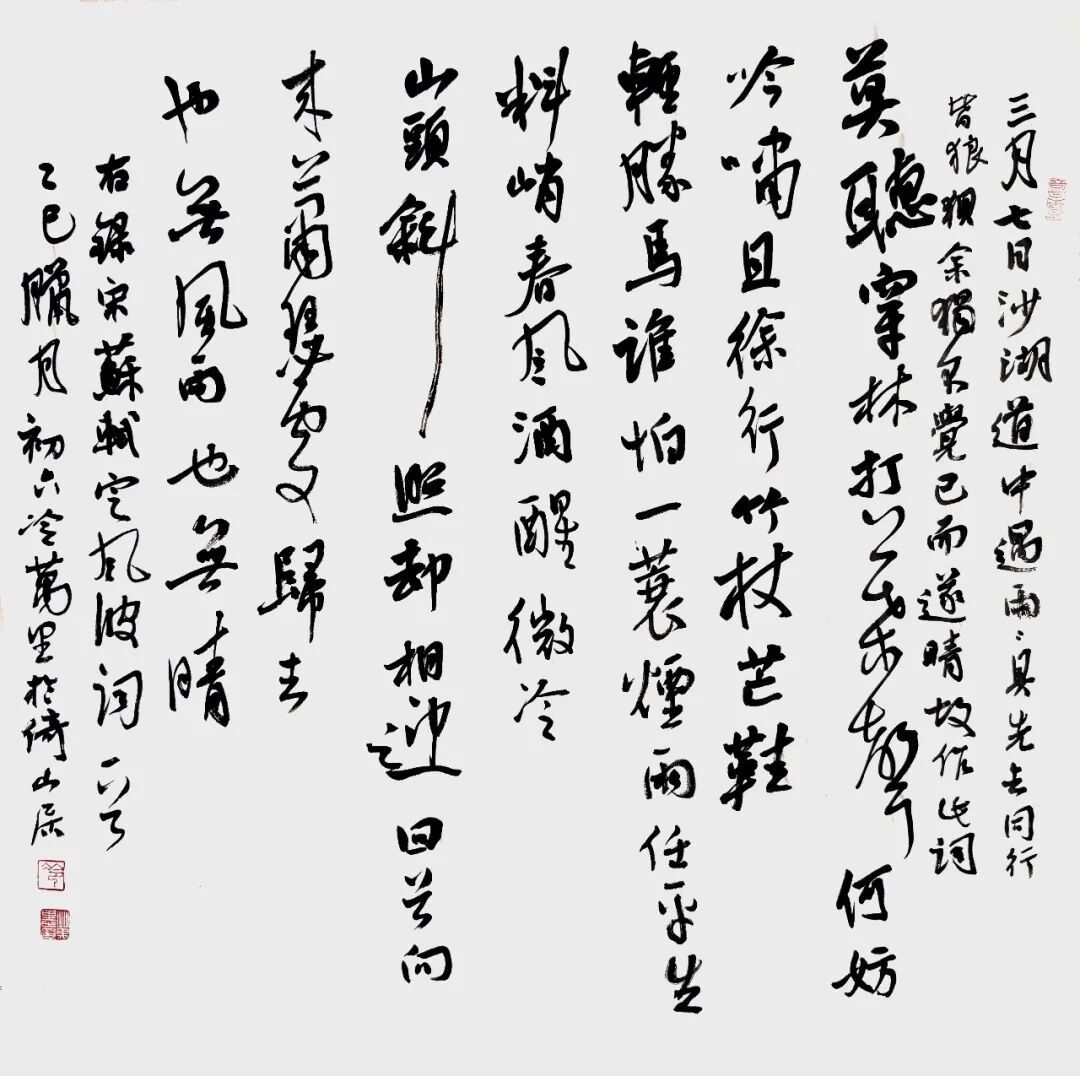 三月七日沙湖道中遇雨、具先去同行
皆狼狽余獨不覺已而遂晴故作此詞
莫聽穿林打葉聲何妨
吟嘯且徐行竹杖芒鞋
輕勝馬誰怕一蓑煙雨任平生
料峭春風酒醒微冷
山頭斜照却相迎回首向
來蕭瑟處歸去
也無風雨也無晴
右錄宋蘇軾定風波詞一首
乙巳臘月初六冷萬里於倚山居